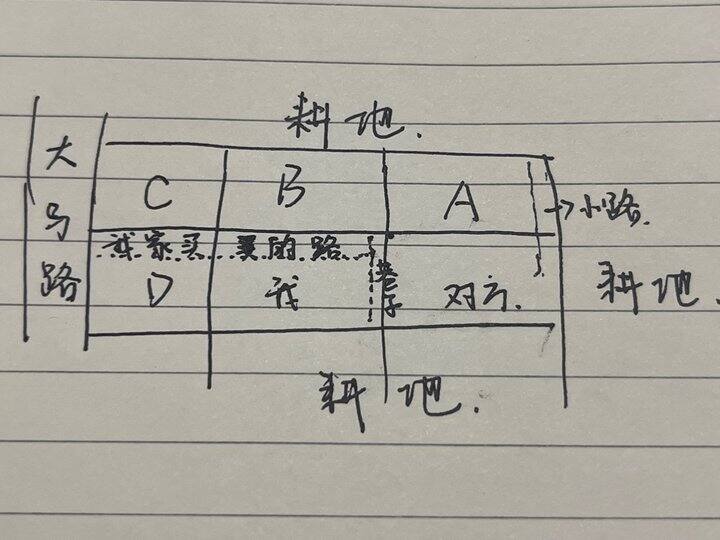 耕地.
大马路
C
B
A
→小路.
我家买 买的路
D
我
巷子
对方.
耕地.
耕地.